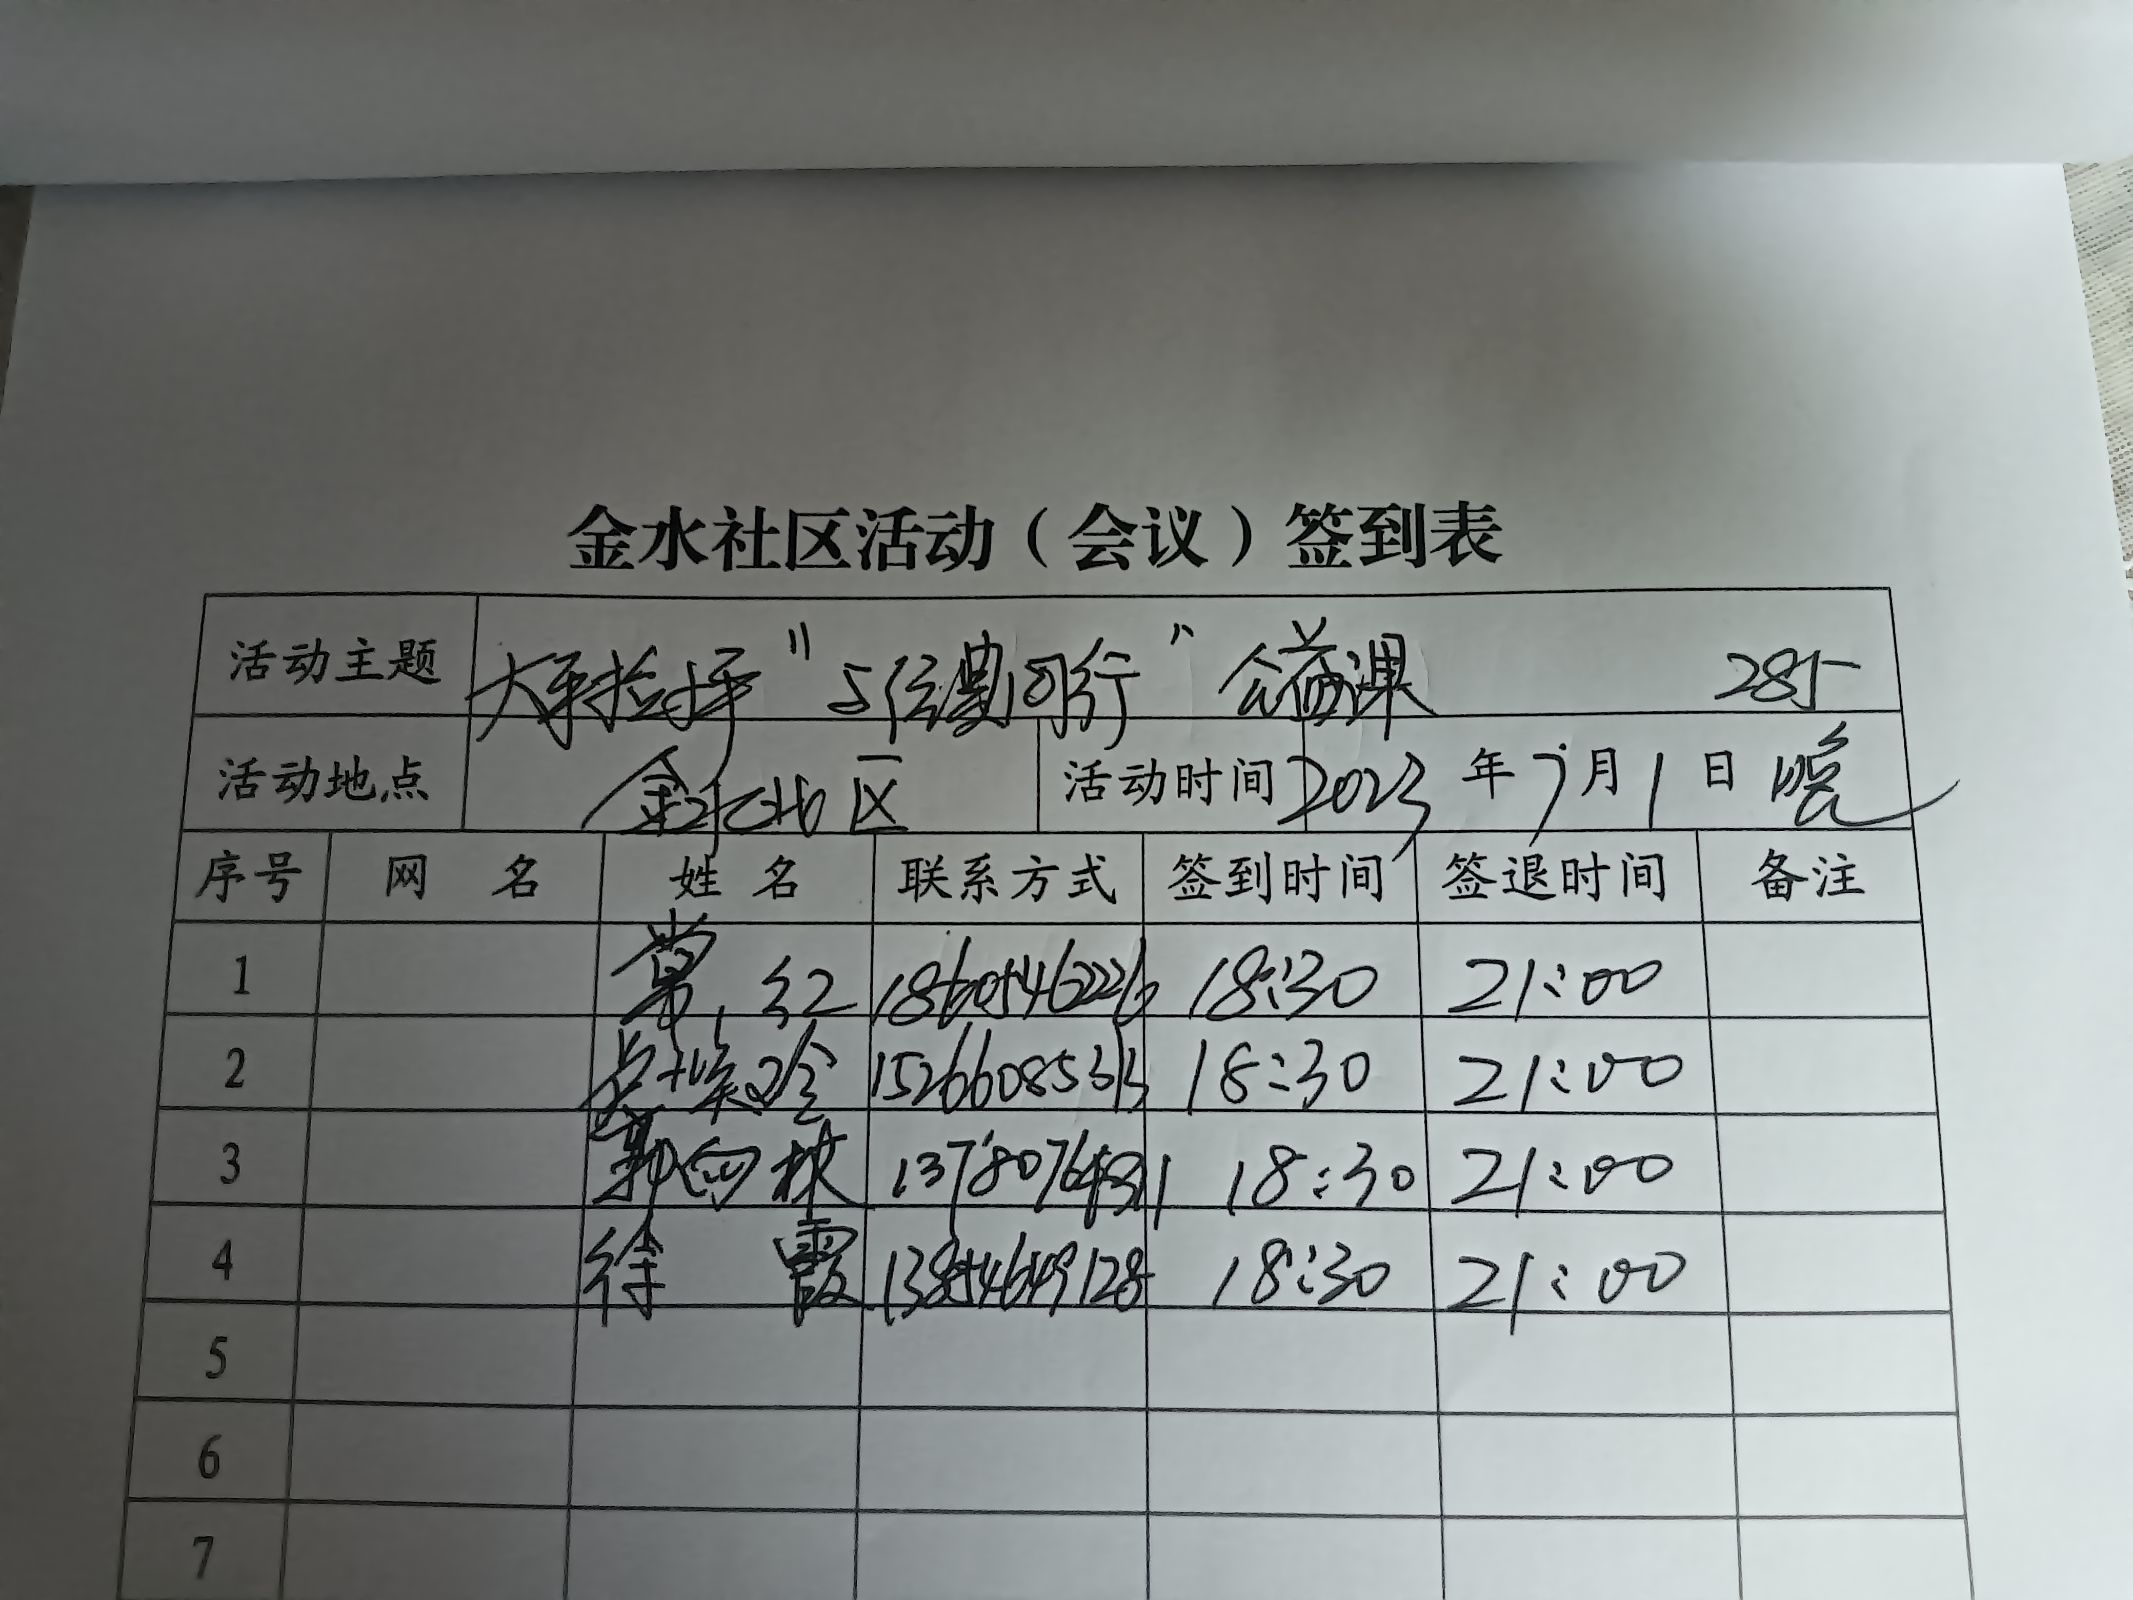 金水社区活动（会议）签到表
活动主题 "与你同行" 公益课 285
活动地点 金水社区 活动时间 2023年7月1日晚
序号 网 名 姓 名 联系方式 签到时间 签退时间 备注
1 红 18605462226 18:30 21:00
2 15266085313 18:30 21:00
3 郭向林 18:30 21:00
4 徐 霞 18:30 21:00
5
6
7